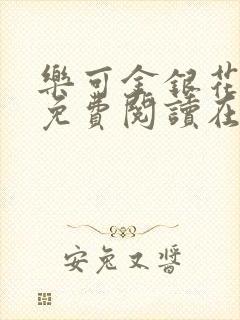 樂可金銀花
免費閱讀在
安兔又醬